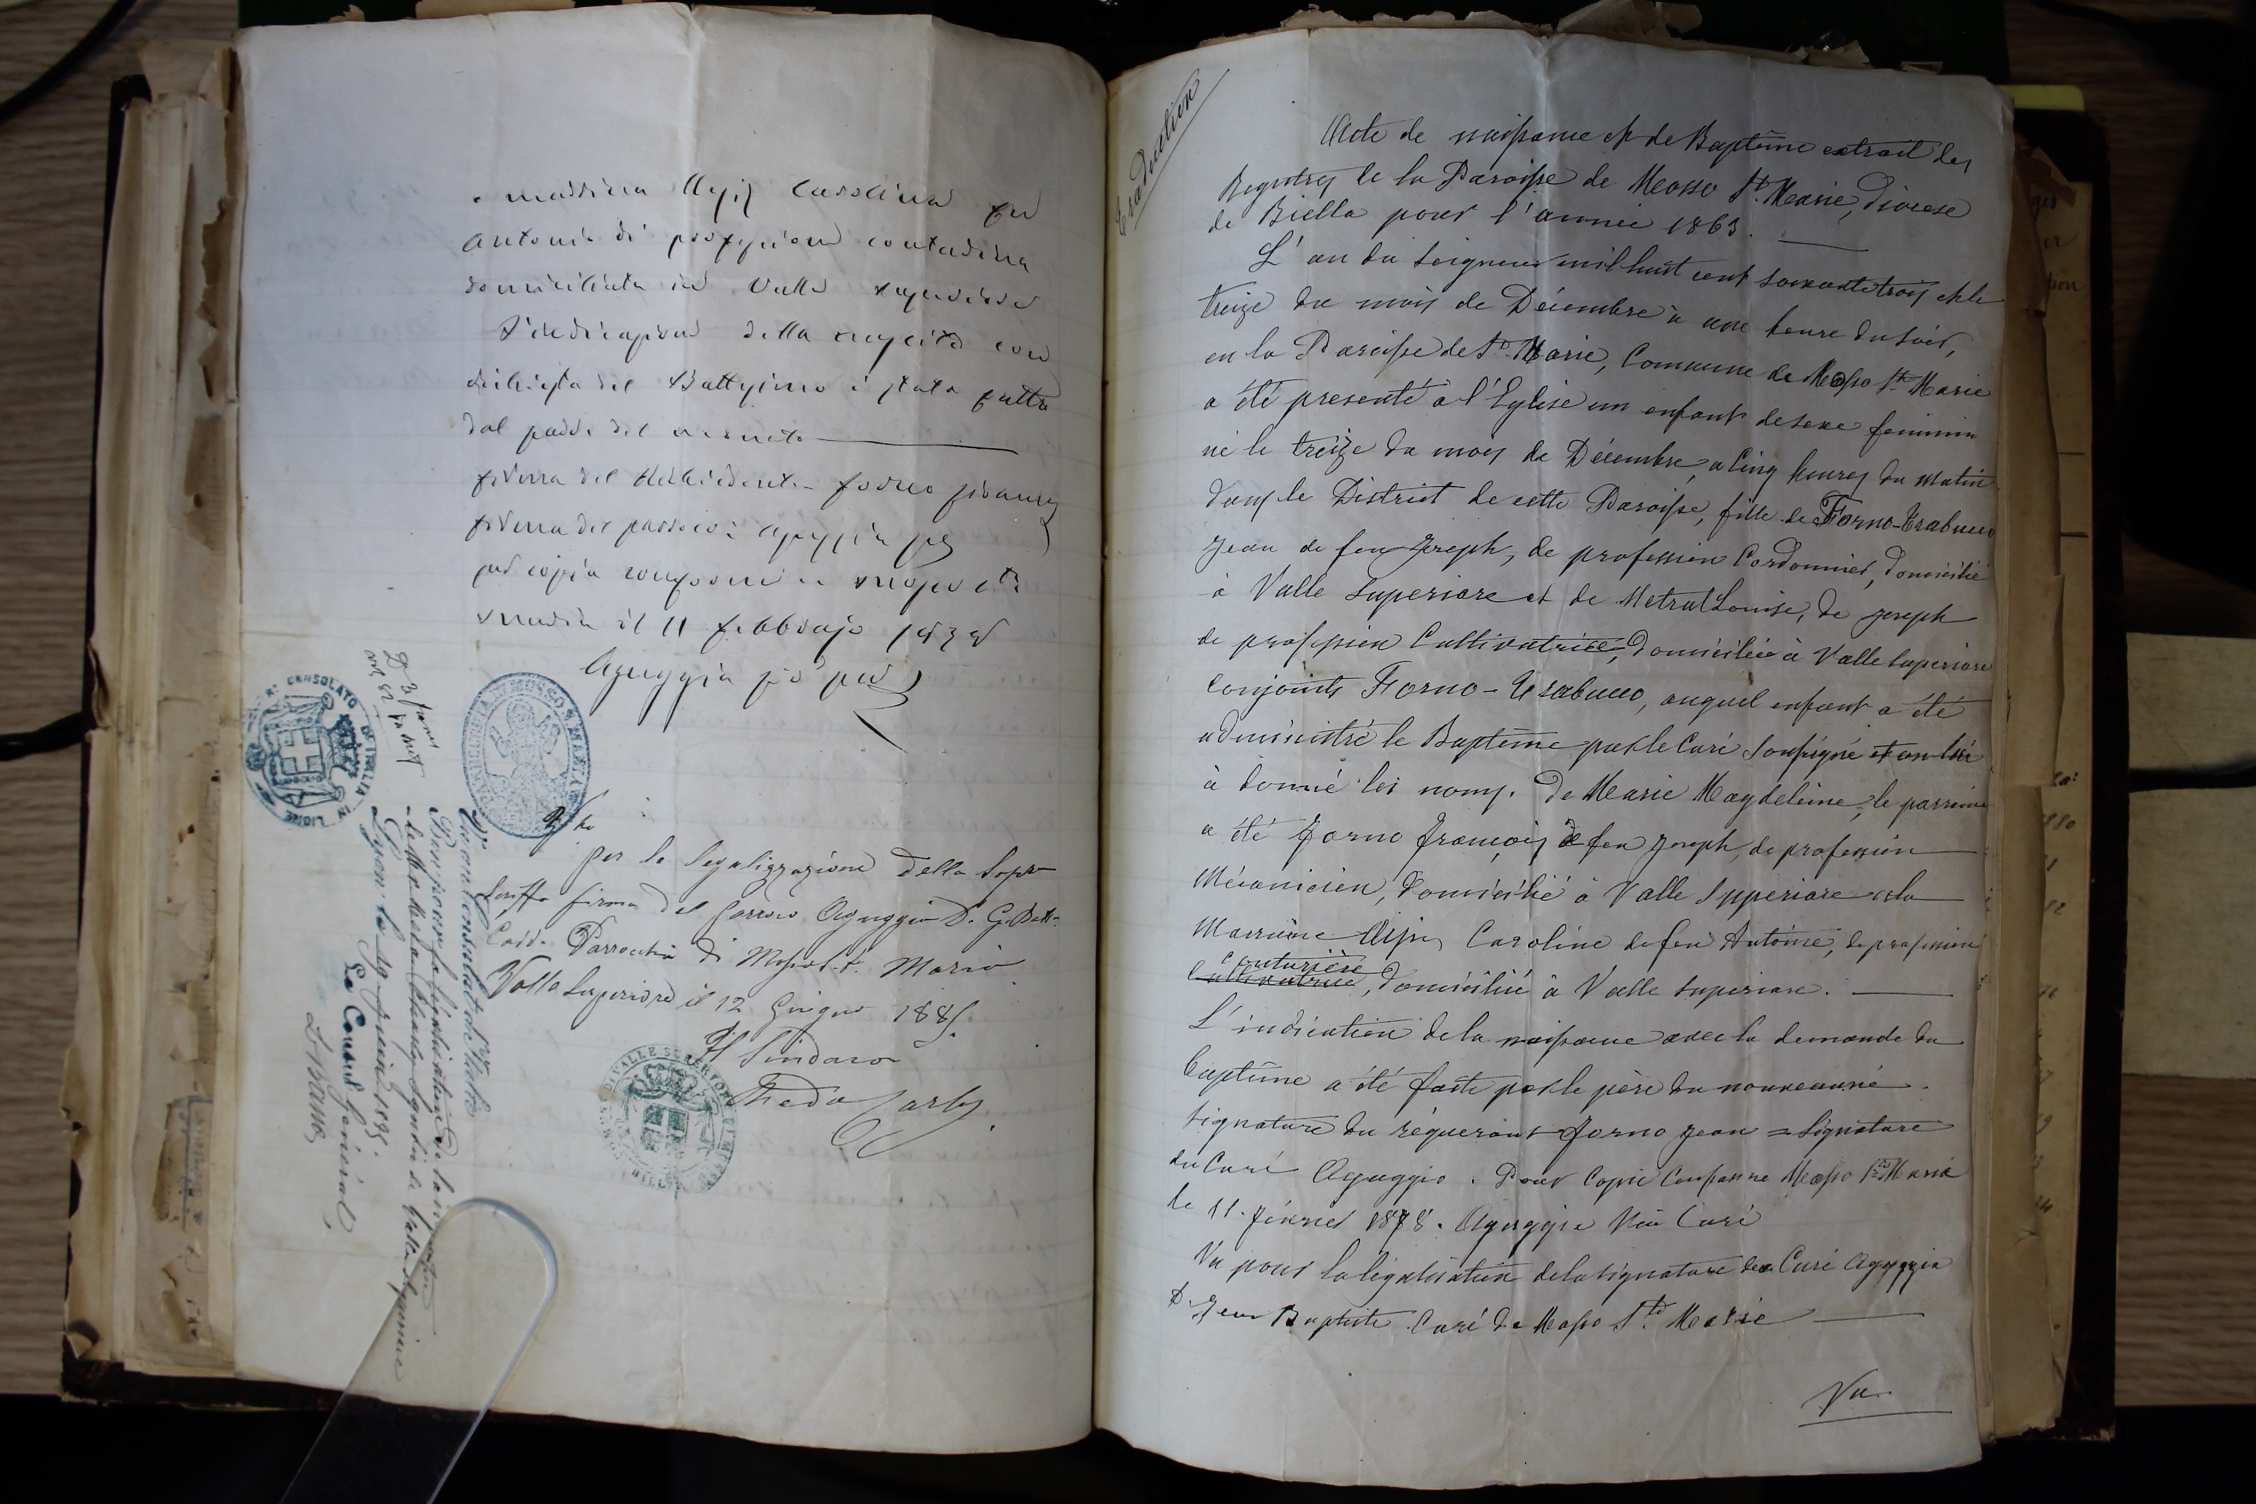 madrina Caterina fu
Antonio di professione contadina
domiciliata in Valle superiore
L'indicazione della nascita con
richiesta del Battesimo è stata fatta
dal padre del neonato
firma del Richiedente Forno Giovanni
firma del parroco: Aguggia
per copia conforme Mosso
il 11 febbrajo 1878
Aguggia
R. CONSOLATO D'ITALIA IN LIONE
per la legalizzazione della Sopra
scritta firma del Parroco Aguggia D. G. Batt.
Parrocchia di Mosso S. Maria
Valle Superiore il 12 Giugno 1885.
Il Sindaco
Vu au Consulat d'Italie
Bon pour la légalisation de la
Lyon le juin 1885
Le Consul Général,
Traduction
Acte de naissance et de Baptême extrait des
Registres de la Paroisse de Mosso Ste Marie, Diocese
de Biella pour l'année 1863.
L'an du Seigneur mil huit cent soixante trois et le
treize du mois de Décembre à une heure du soir,
en la Paroisse de Ste Marie, Commune de Mosso Ste Marie
a été presenté à l'Eglise un enfant de sexe feminin
né le treize du mois de Décembre, a Cinq heures du matin
dans le District de cette Paroisse, fille de Forno-Trabucco
Jean de feu Joseph, de profession Cordonnier, domicilié
à Valle Superiore et de Metral Louise, de Joseph
de profession Cultivatrice, domiciliée à Valle Superiore
Conjoints Forno-Trabucco, auquel enfant a été
administré le Baptême par le Curé soussigné et on lui
à donné les noms. De Marie Magdeleine, le parrain
a été Forno François de feu Joseph, de profession
Mécanicien, domicilié à Valle Supperiore et la
Marraine Caroline de feu Antoine, de profession
couturière
Cultivatrice, domiciliée à Valle Superiore.
L'indication de la naissance avec la demande du
Baptême a été faite par le père du nouveau né.
Signature du réquerant Forno Jean = Signature
du Curé Aguggia. Pour Copie Conforme Mosso Ste Marie
le 11. Février 1878. Aguggia Curé
Vu pour la légalisation de la signature du Curé Aguggia
D. Jean Baptiste Curé de Mosso Ste Marie
Vu